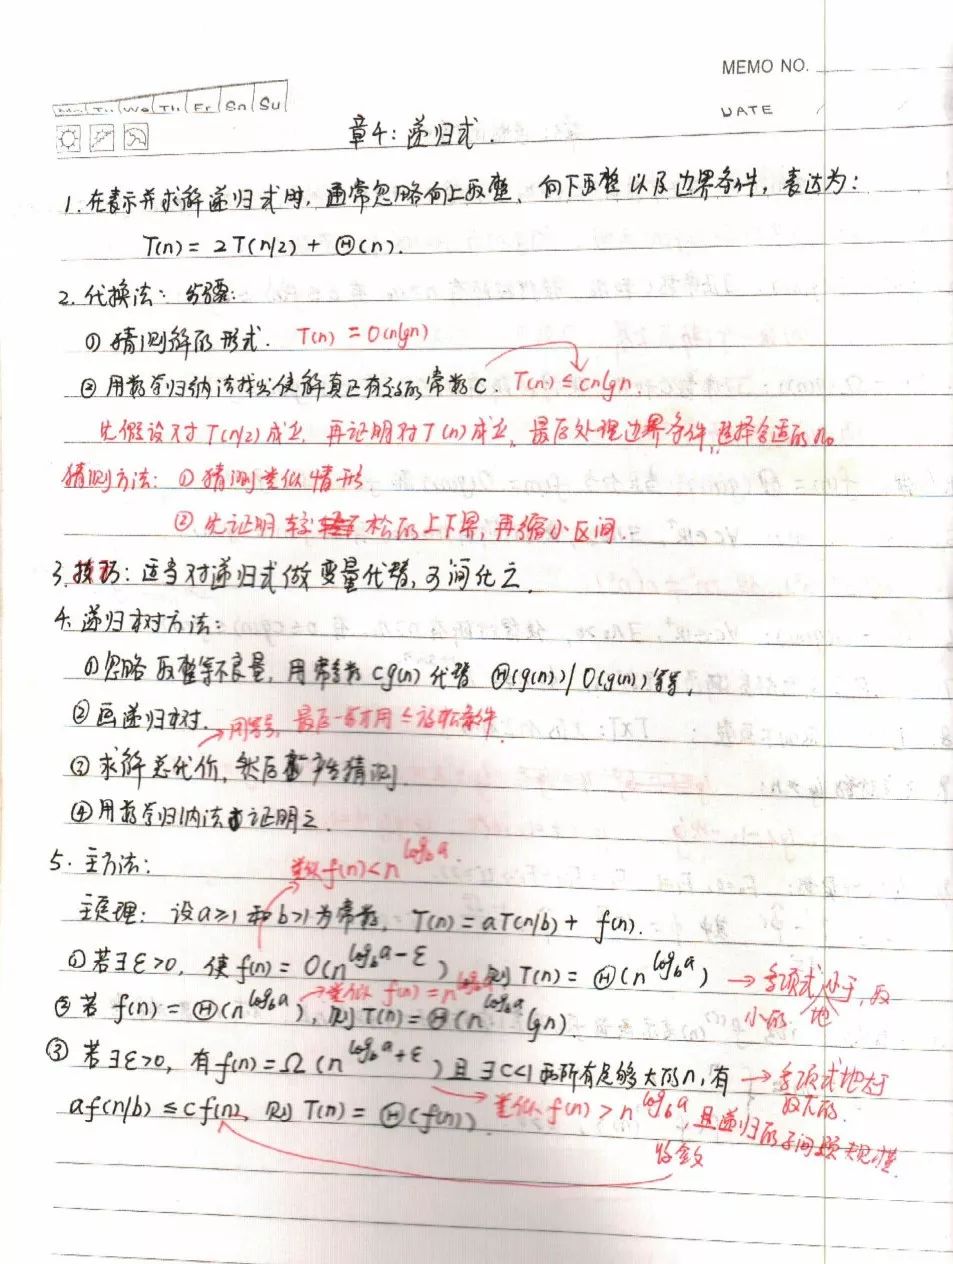 MEMO NO.
Mo Tu We Th Fr Sa Su
DATE
章4: 递归式.
1. 在表示并求解递归式时, 通常忽略向上取整、向下取整以及边界条件, 表达为:
T(n) = 2T(n/2) + Θ(n).
2. 代换法: 步骤:
① 猜测解的形式. T(n) = O(nlgn)
② 用数学归纳法找出使解真正有效的常数C. T(n) ≤ cnlgn.
先假设对T(n/2)成立, 再证明对T(n)成立, 最后处理边界条件, 选择合适的n₀
猜测方法: ① 猜测类似情形
② 先证明较松的上下界, 再缩小区间.
3. 技巧: 适当对递归式做变量代替, 可简化之.
4. 递归树方法:
① 忽略取整等不良量, 用常数cg(n)代替 Θ(g(n))/O(g(n))等等,
② 画递归树. → 用等号, 最后一步才用≤放松条件
③ 求解总代价, 然后产生猜测.
④ 用数学归纳法证明之.
5. 主方法:
类似f(n)<n^{log_b a}.
主定理: 设a≥1和b>1为常数, T(n) = aT(n/b) + f(n).
① 若∃ε>0, 使f(n) = O(n^{log_b a-ε}), 则T(n) = Θ(n^{log_b a}) → 多项式地小于, 取
小的
→ 类似 f(n) = n^{log_b a}
② 若 f(n) = Θ(n^{log_b a}), 则T(n) = Θ(n^{log_b a} lgn)
③ 若∃ε>0, 有f(n) = Ω(n^{log_b a+ε})且∃c<1 所有足够大的n, 有 → 多项式地大于
取大的.
af(n/b) ≤ cf(n), 则 T(n) = Θ(f(n)).
→ 类似f(n) > n^{log_b a}, 且递归的子问题规模
收敛